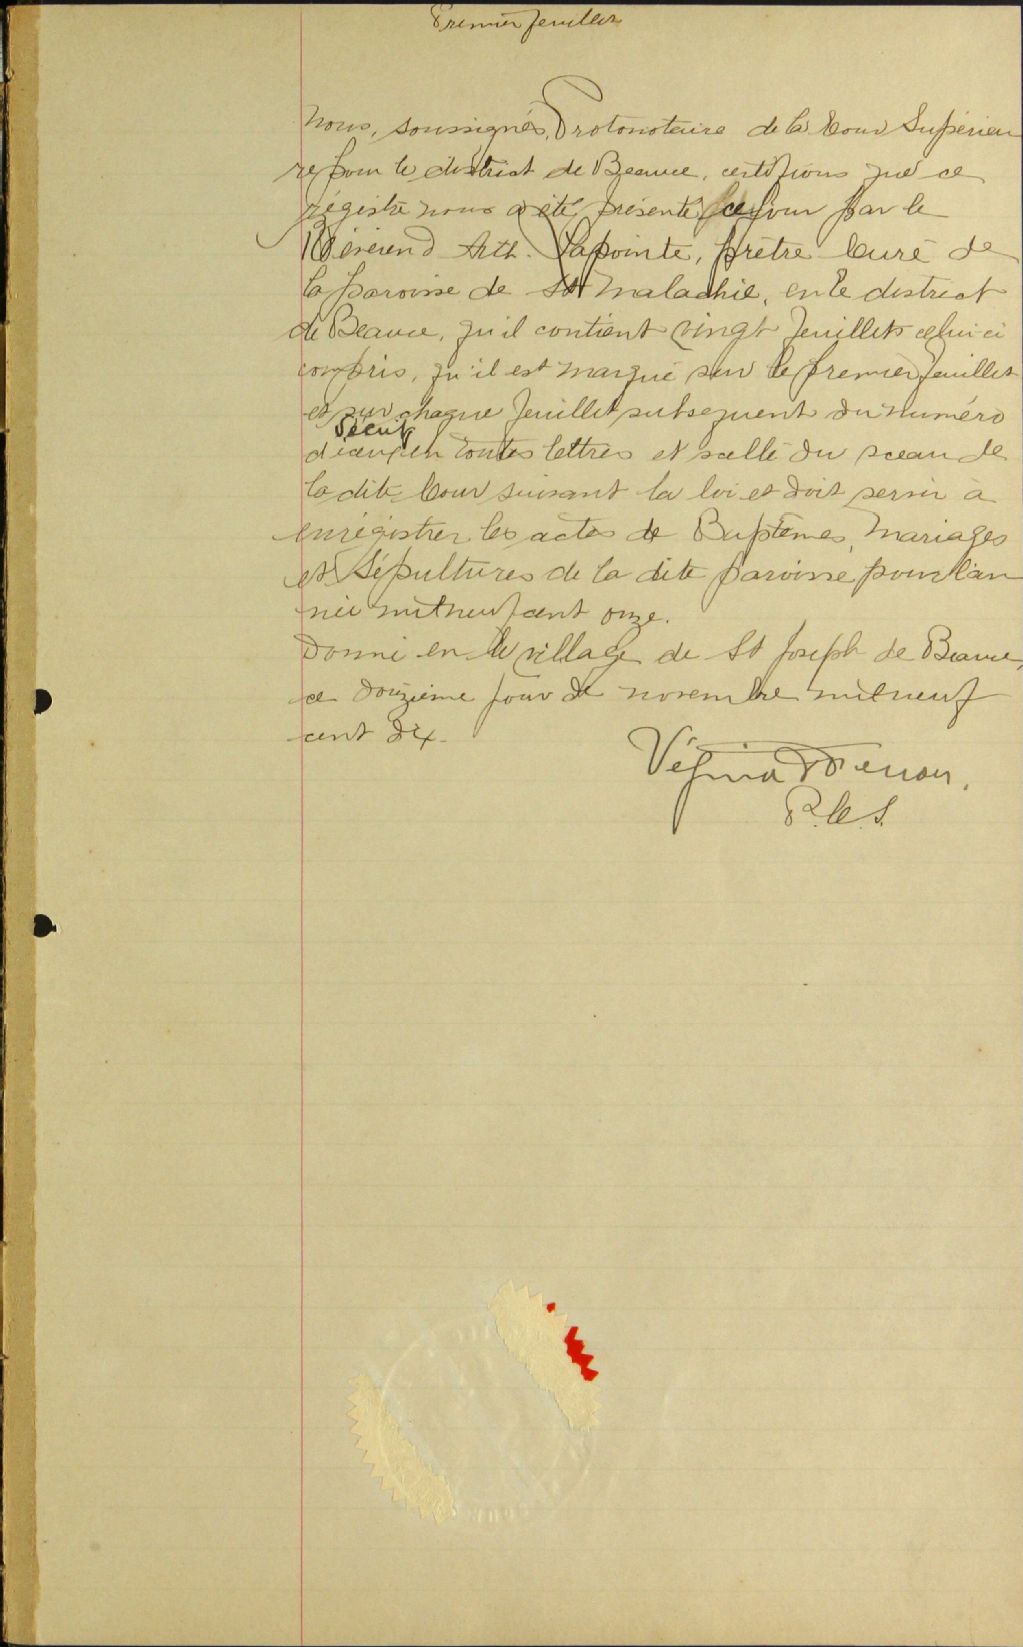 Premier feuillet
Nous, soussignés, Protonotaire de la Cour Supérieu
re pour le district de Beauce, certifions que ce
régistre nous a été présenté ce jour par le
Révérend Arth. Lapointe, prêtre Curé de
la paroisse de St Malachie, en le district
de Beauce, qu'il contient vingt feuillets celui ci
compris, qu'il est marqué sur le premier feuillet
et sur chaque feuillet subsequent du numéro
d'iceux en toutes lettres et scellé du sceau de
la dite Cour suivant la loi et doit servir à
enrégistrer les actes de Baptêmes, Mariages
et Sépultures de la dite paroisse pour l'an
née mil neuf cent onze.
Donné en le village de St Joseph de Beauce,
ce douzième jour de novembre mil neuf
cent dix.
Vézina &
P.C.S.